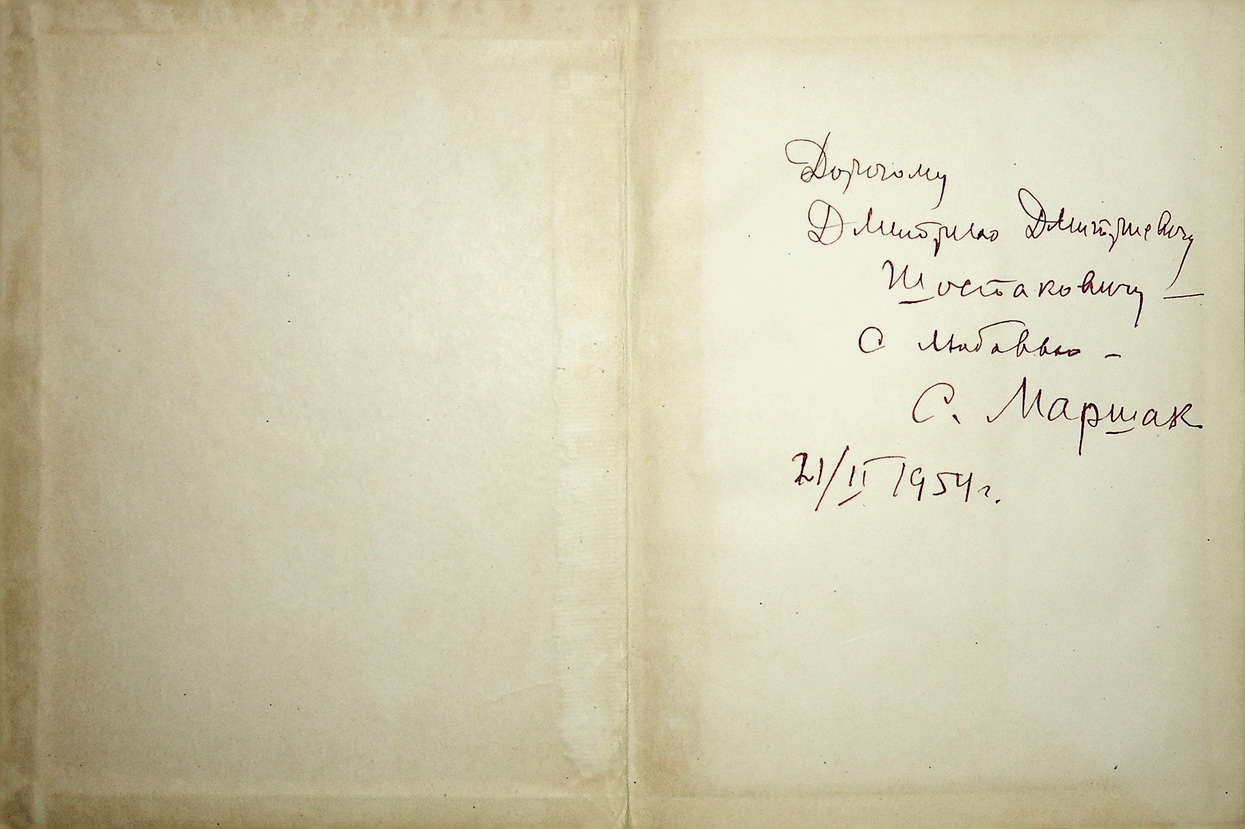 Дорогому
Дмитрию Дмитриевичу
Шостаковичу —
С любовью –
С. Маршак
21/II 1954 г.